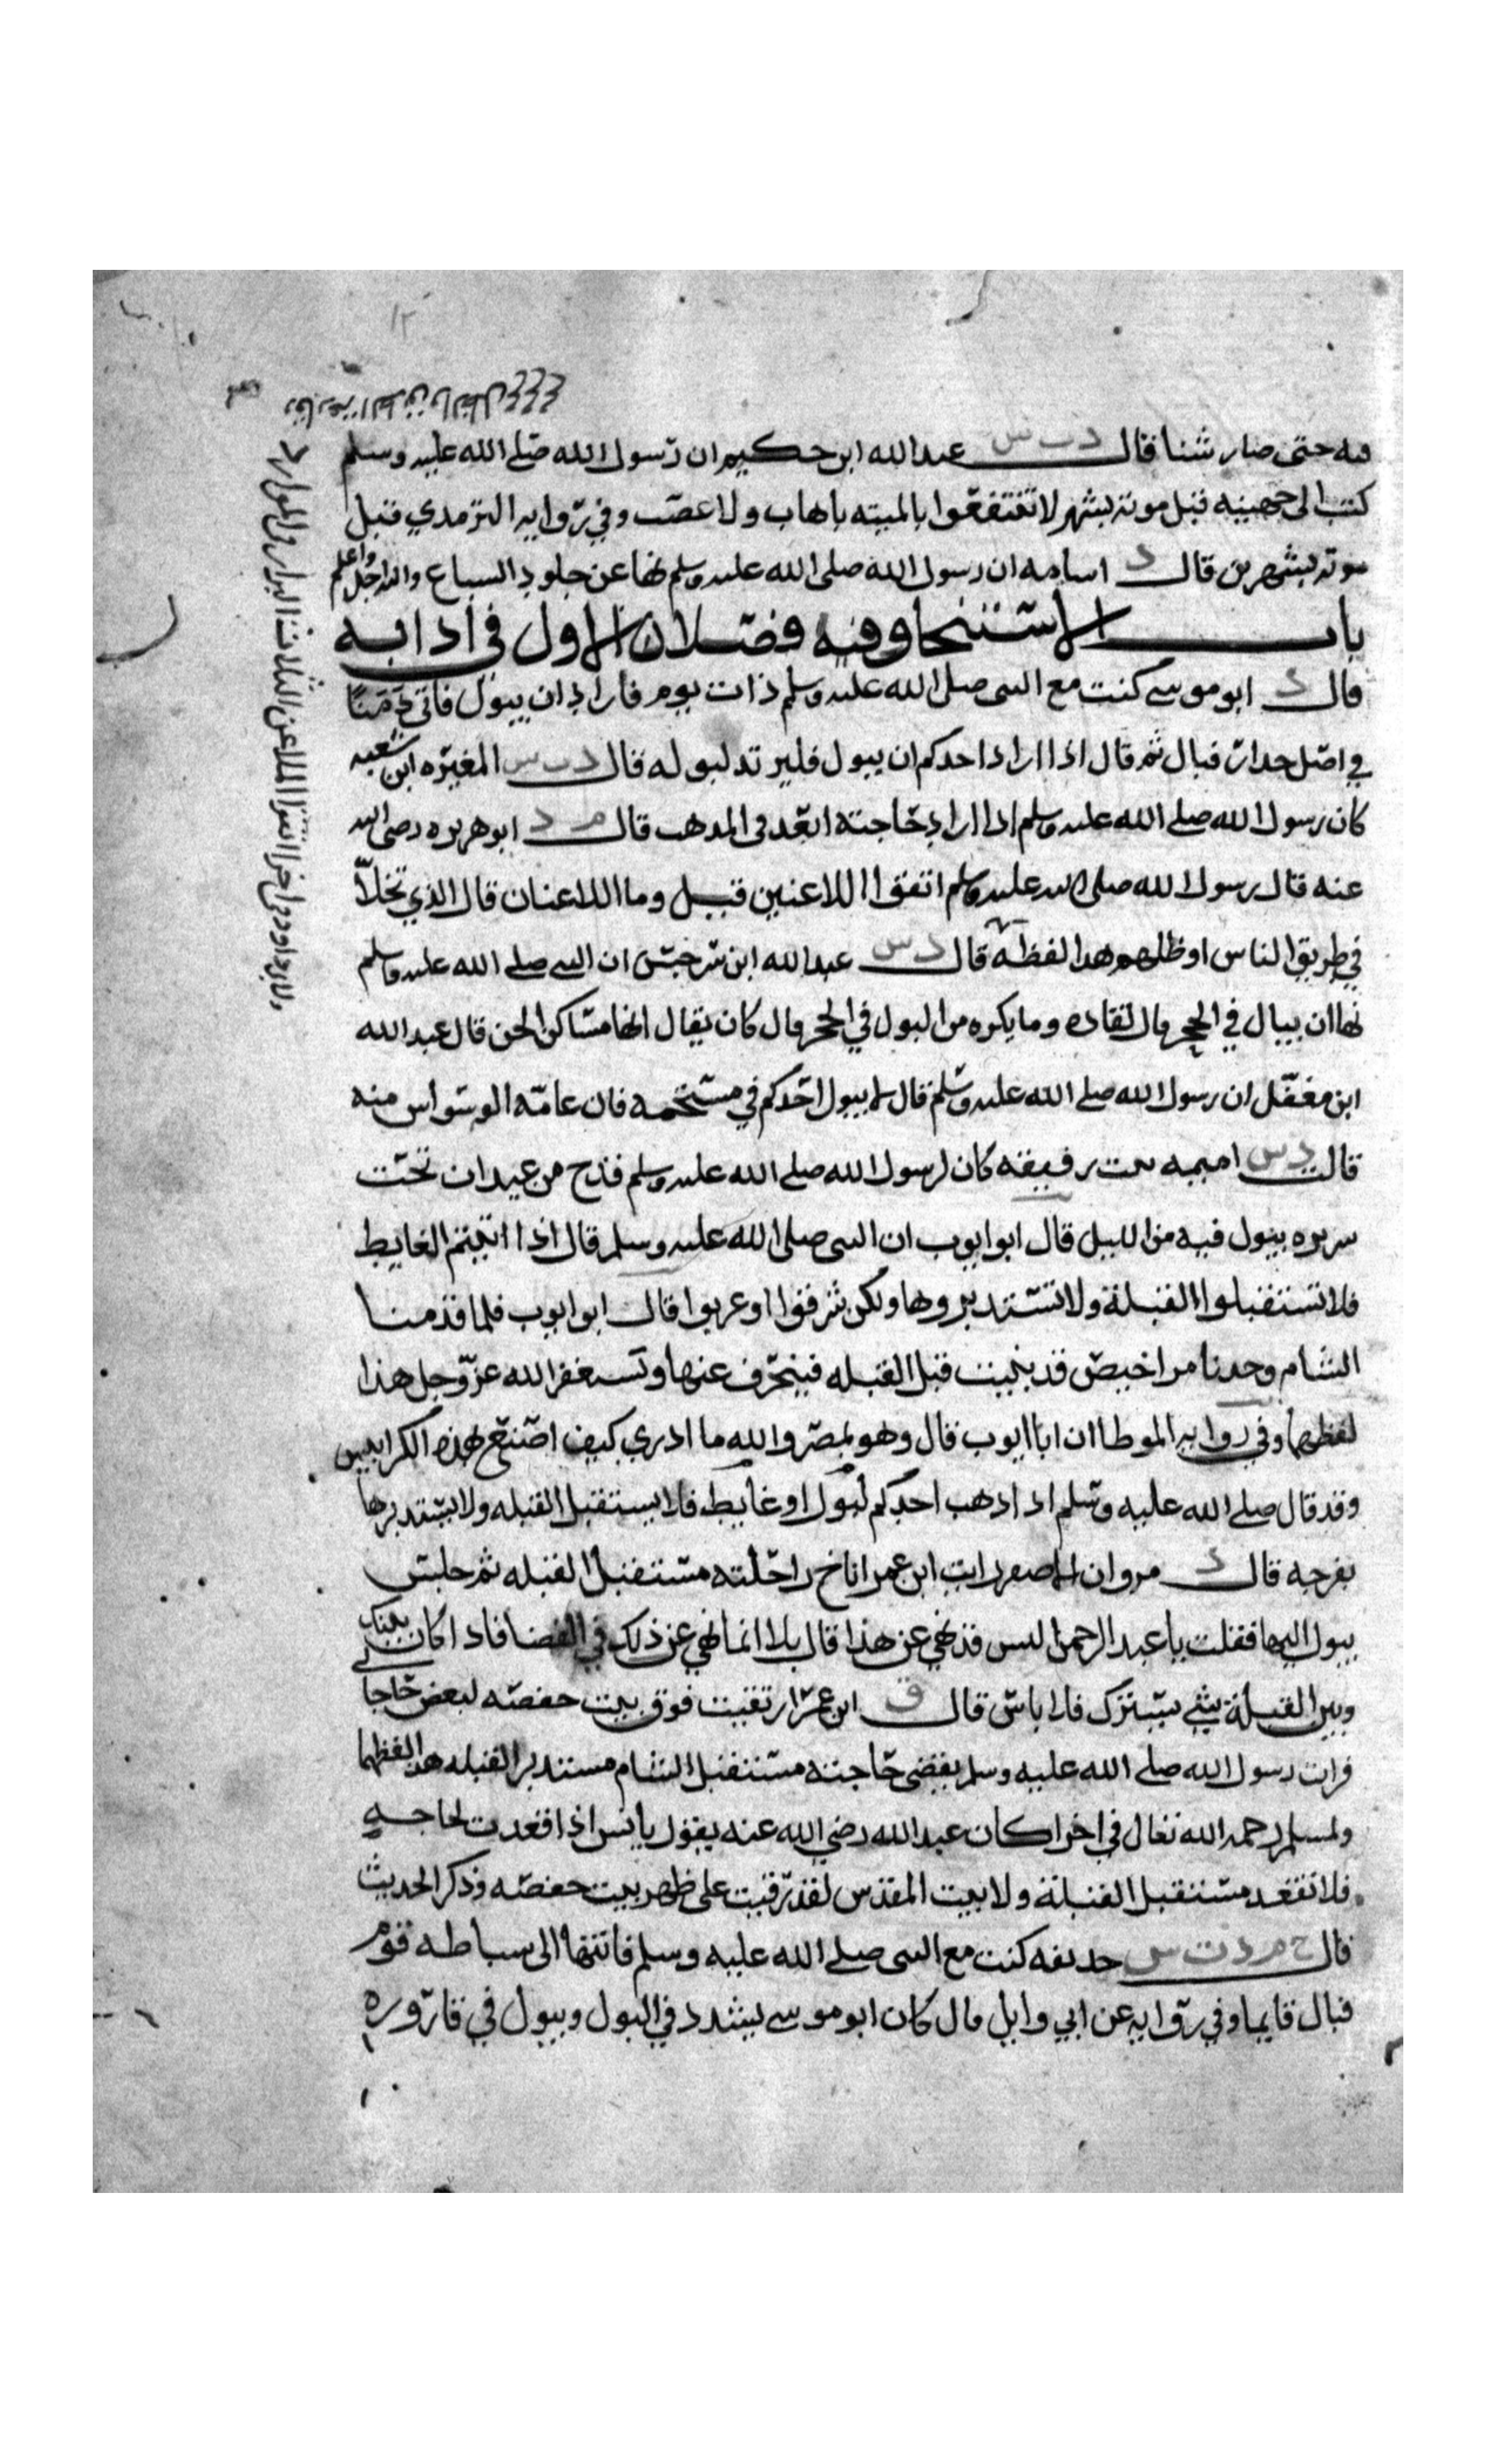 فيه حتى صار شنا قال د ت س عبد الله ابن حكيم ان رسول الله صلى الله عليه وسلم
كتب الى جهينه قبل موته بشهر لا تنتفعوا بالميته باهاب ولا عصب وفي روايه الترمدي قبل
موته بشهرين قال د اسامه ان رسول الله صلى الله عليه وسلم نها عن جلود السباع والله اجل واعلم
باب الاستنجا وفيه فصلان الاول في ادابه
قال د ابو موسى كنت مع النبى صلى الله عليه وسلم ذات يوم فاراد ان يبول فاتى دمثا
في اصل جدار فبال ثم قال اذا اراد احدكم ان يبول فليرتد لبوله قال د ت س المغيره ابن شعبه
كان رسول الله صلى الله عليه وسلم اذا اراد حاجته ابعد في المدهب قال م د ابو هريره رضى الله
عنه قال رسول الله صلى الله عليه وسلم اتقوا اللاعنين قيل وما اللاعنان قال الذي تخلا
في طريق الناس او ظلهم هدا لفظه قال د س عبد الله ابن سرجس ان النبى صلى الله عليه وسلم
نها ان يبال في الجحر قال لقتاده وما يكره من البول في الجحر قال كان يقال انها مساكن الجن قال عبد الله
ابن مغفل ان رسول الله صلى الله عليه وسلم قال لا يبول احدكم في مستحمه فان عامه الوسواس منه
قالت د س اميمه بنت رقيقه كان لرسول الله صلى الله عليه وسلم قدح من عيدان تحت
سريره يبول فيه من الليل قال ابو ايوب ان النبى صلى الله عليه وسلم قال اذا اتيتم الغايط
فلا تستقبلوا القبلة ولا تستدبروها ولكن شرقوا او غربوا قال ابو ايوب فلما قدمنا
الشام وجدنا مراحيض قد بنيت قبل القبله فينحرف عنها ونستغفر الله عز وجل هذا
لفظهما وفي روايه الموطا ان ابا ايوب قال وهو بمصر والله ما ادري كيف اصنع بهذه الكراييس
وقد قال صلى الله عليه وسلم اذا ذهب احدكم لبول او غايط فلا يستقبل القبله ولا يستدبرها
بفرجه قال د مروان الاصفر رايت ابن عمر اناخ راحلته مستقبل القبله ثم جلس
يبول اليها فقلت يا عبد الرحمن اليس قد نهي عن هذا قال بلا انما نهي عن ذلك في الفضا فاذا كان بينك
وبين القبلة شي يسترك فلا باس قال ق ابن عمر ارتقيت فوق بيت حفصه لبعض حاجا
فرايت رسول الله صلى الله عليه وسلم يقضى حاجته مستقبل الشام مستدبر القبله هدا لفظهما
ولمسلم رحمه الله تعال في اخرا كان عبد الله رضي الله عنه يقول ياناس اذا قعدت لحاجه
فلا تقعد مستقبل القبلة ولا بيت المقدس لقد رقيت على ظهر بيت حفصه وذكر الحديث
قال خ م د ت س حديفه كنت مع النبى صلى الله عليه وسلم فانتها الى سباطه قوم
فبال قايما وفي روايه عن ابي وايل قال كان ابو موسى يشدد في البول ويبول في قارورة